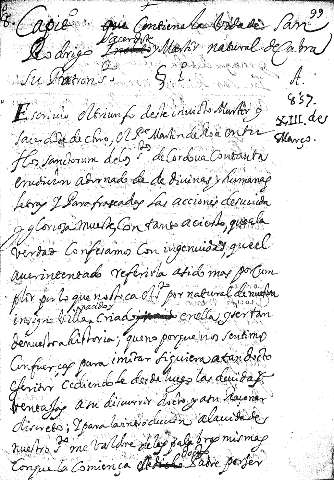 99
Capi.º que Contiene la Vida de San
Sacerdote
Rodrigo y Martir natural de Cabra
su Patron. § 1.
A.
857.
XIII. de
Março.
Escriuio el triunfo deste inuicto Martir y
sacerdote de christo, el Pe. Martin de Roa en su
flos sanctorum de los de Cordoua Con tanta
erudicion adornado de diuinas y humanas
letras y Parafraseadas las acciones de su vida
y gloriosa muerte, Con tanto acierto, que la
verdad Confesamos Con ingenuidad, que el
auer intentado referirla a sido mas por cum
plir por lo que nos toca por natural de nuestra
insigne Villa, y Criado en ella, y ser tan
de nuestra historia; que no porque nos sentimos
Con fuerças para imitar siquiera a tan docto
escritor Cediendole desde luego las deuidas
ventajas a su discurrir docto, y a su Raçonar
discreto; y para la introducion a la vida de
nuestro me valdre de las palabras mismas
Con que la Comiença Padre por ser